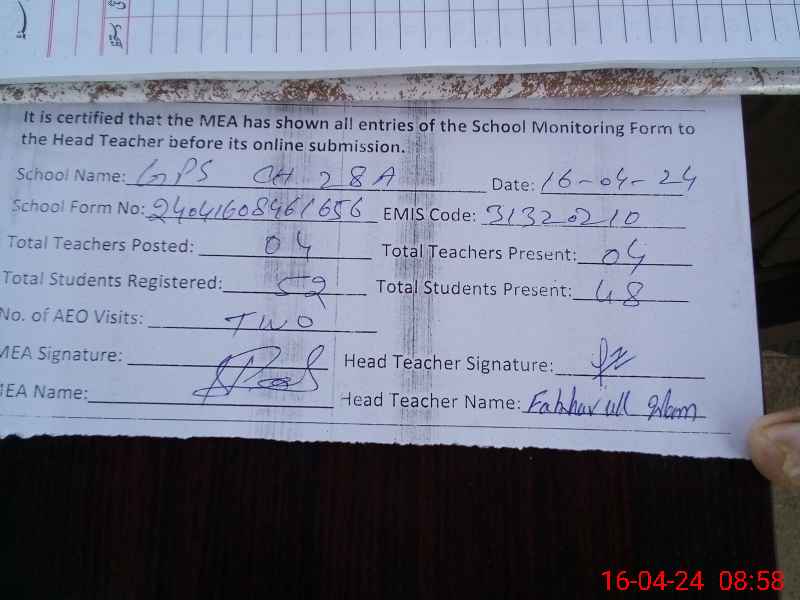 It is certified that the MEA has shown all entries of the School Monitoring Form to
the Head Teacher before its online submission.
School Name: GPS CH 28A Date: 16-04-24
School Form No: 24041608461656 EMIS Code: 31320210
Total Teachers Posted: 04 Total Teachers Present: 04
Total Students Registered: 52 Total Students Present: 48
No. of AEO Visits: TWO
MEA Signature: Head Teacher Signature:
MEA Name: Head Teacher Name:
16-04-24 08:58